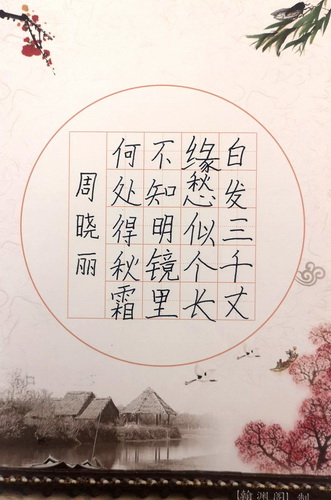 白发三千丈
缘愁似个长
不知明镜里
何处得秋霜
周晓丽
[翰渊阁]制